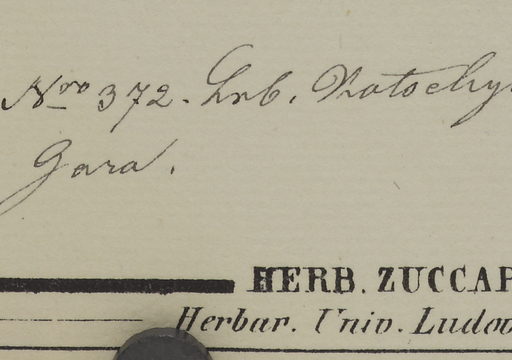 Nro 372. Hrb. Kotschy
Gara.
HERB. ZUCCAR
Herbar. Univ. Ludov